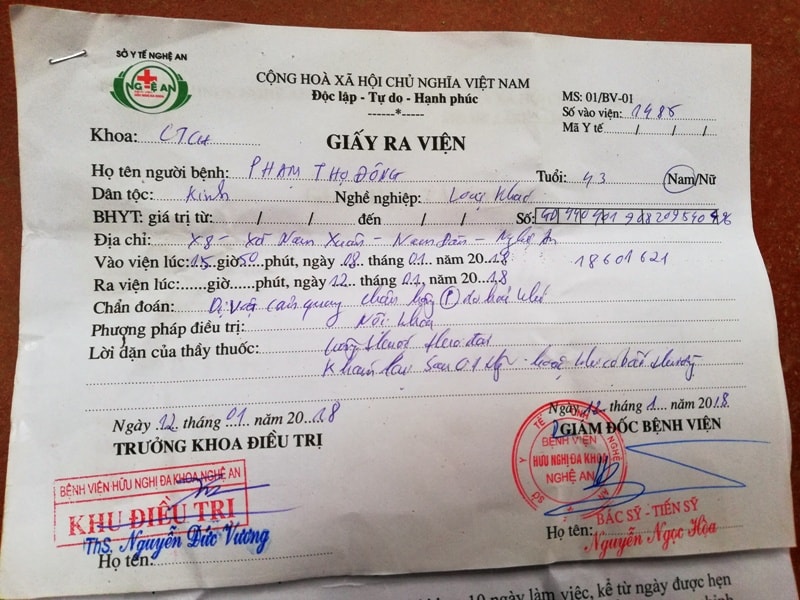 SỞ Y TẾ NGHỆ AN
NGHỆ AN
CỘNG HOÀ XÃ HỘI CHỦ NGHĨA VIỆT NAM
Độc lập - Tự do - Hạnh phúc
MS: 01/BV-01
Số vào viện: 1485
Mã Y tế / /
Khoa: CTCH
GIẤY RA VIỆN
Họ tên người bệnh: PHẠM THỌ ĐÔNG Tuổi: 43 Nam/Nữ
Dân tộc: Kinh Nghề nghiệp:
BHYT: giá trị từ: / / đến / / Số:
Địa chỉ: X8 - Xã Nam Xuân - Nam Đàn - Nghệ An
Vào viện lúc: 15 giờ 50 phút, ngày 08 tháng 01 năm 2018 18601621
Ra viện lúc: giờ phút, ngày 12 tháng 01 năm 2018
Chẩn đoán: Dị vật
Phượng pháp điều trị: Nội khoa
Lời dặn của thầy thuốc:
Khám lại sau 01
Ngày 12 tháng 01 năm 2018
TRƯỞNG KHOA ĐIỀU TRỊ
Ngày 12 tháng 1 năm 2018
GIÁM ĐỐC BỆNH VIỆN
BỆNH VIỆN HỮU NGHỊ ĐA KHOA NGHỆ AN
KHU ĐIỀU TRỊ
ThS. Nguyễn Đức Vương
Họ tên:
BỆNH VIỆN
HỮU NGHỊ ĐA KHOA
NGHỆ AN
BÁC SỸ - TIẾN SỸ
Họ tên: Nguyễn Ngọc Hòa
10 ngày làm việc, kể từ ngày được hẹn